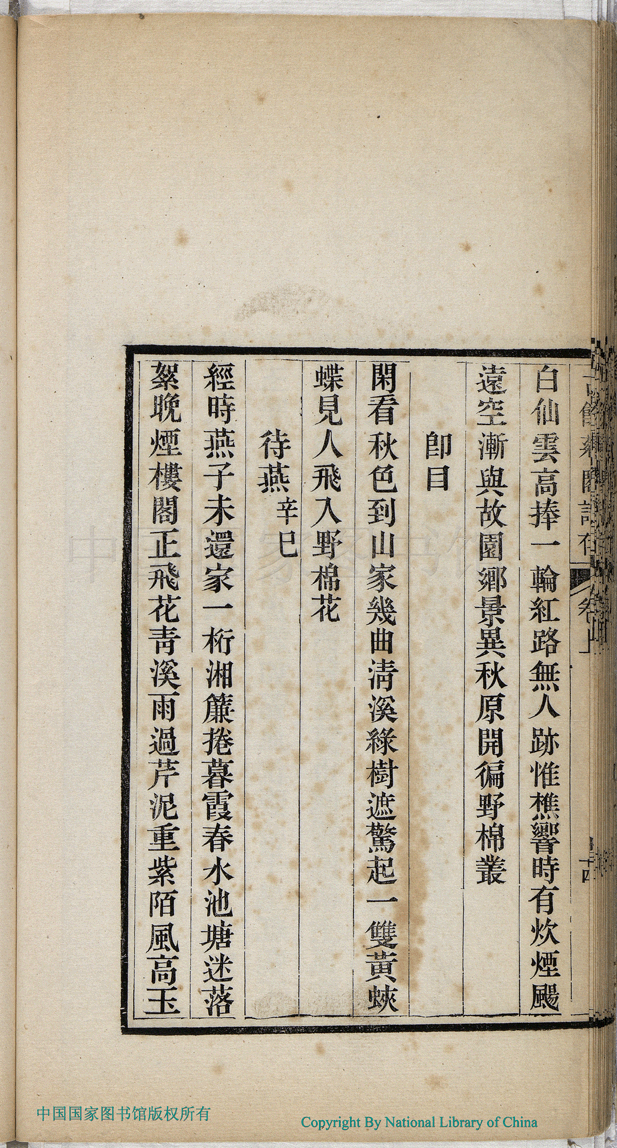 白仙雲高捧一輪紅路無人跡惟樵響時有炊煙颺
遠空漸與故園鄉景異秋原開徧野棉叢
卽目
閑看秋色到山家幾曲淸溪綠樹遮驚起一雙黃蛺
蝶見人飛入野棉花
待燕辛巳
經時燕子未還家一桁湘簾捲暮霞春水池塘迷落
絮晚煙樓閣正飛花靑溪雨過芹泥重紫陌風高玉
中国国家图书馆版权所有
Copyright By National Library of China